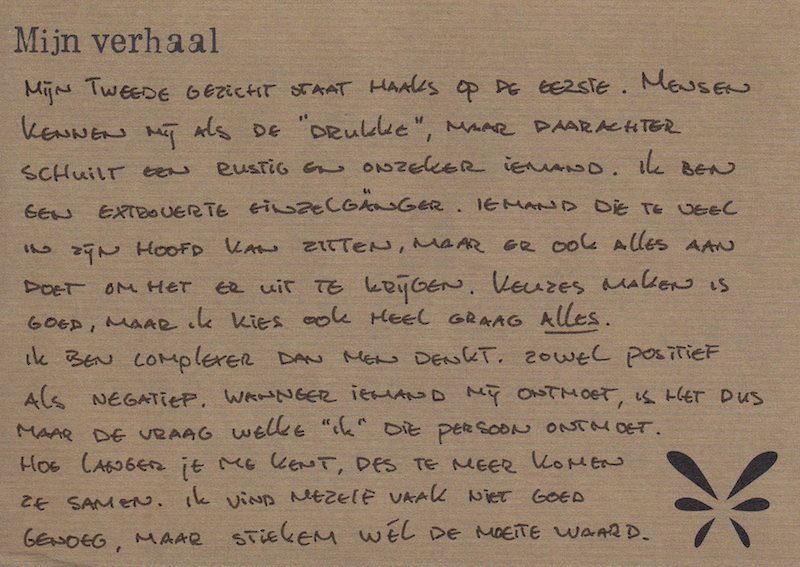 Mijn verhaal
MIJN TWEEDE GEZICHT STAAT HAAKS OP DE EERSTE. MENSEN
KENNEN MIJ ALS DE "DRUKKE", MAAR DAARACHTER
SCHUILT EEN RUSTIG EN ONZEKER IEMAND. IK BEN
EEN EXTROVERTE EINZELGÄNGER. IEMAND DIE TE VEEL
IN ZIJN HOOFD KAN ZITTEN, MAAR ER OOK ALLES AAN
DOET OM HET ER UIT TE KRIJGEN. KEUZES MAKEN IS
GOED, MAAR IK KIES OOK HEEL GRAAG ALLES.
IK BEN COMPLEXER DAN MEN DENKT. ZOWEL POSITIEF
ALS NEGATIEF. WANNEER IEMAND MIJ ONTMOET, IS HET DUS
MAAR DE VRAAG WELKE "IK" DIE PERSOON ONTMOET.
HOE LANGER JE ME KENT, DES TE MEER KOMEN
ZE SAMEN. IK VIND MEZELF VAAK NIET GOED
GENOEG, MAAR STIEKEM WÉL DE MOEITE WAARD.